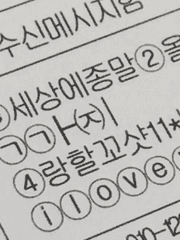 수신메시지
세상에종말②올
㉠㉠┣㈈ㅣ
④랑할꼬샷11*
ⓘⓛⓞⓥⓔ
010-12